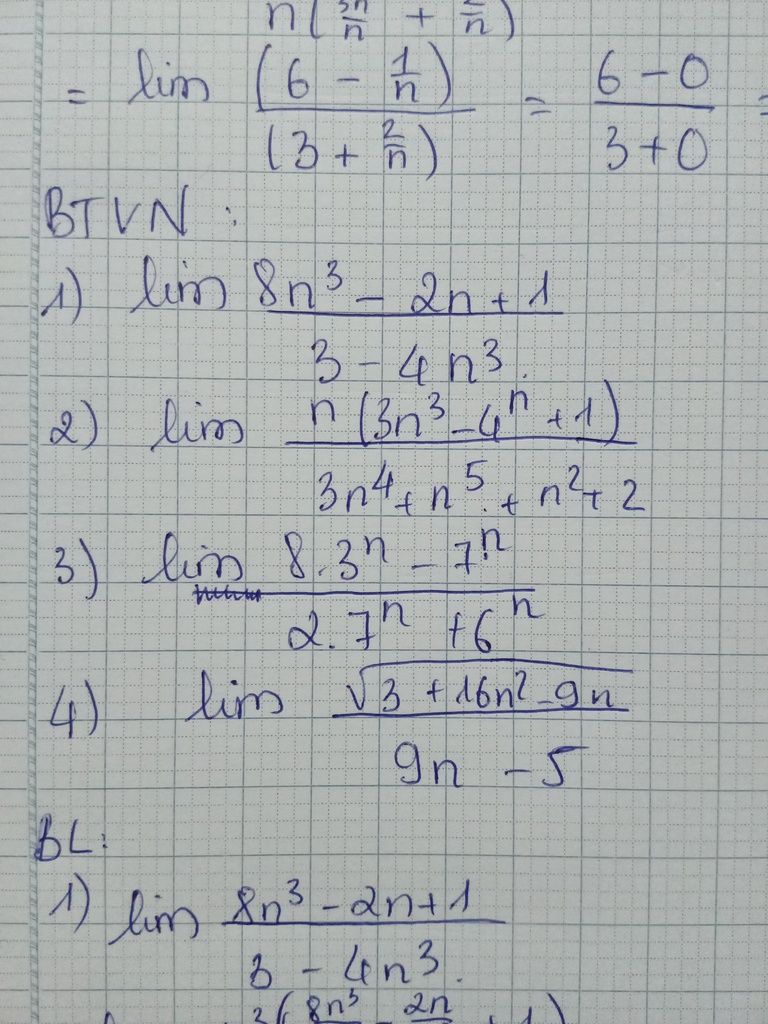 n(3n/n + 2/n)
= lim (6 - 1/n)/(3 + 2/n) = (6 - 0)/(3 + 0) =
BTVN :
1) lim (8n³ - 2n + 1)/(3 - 4n³)
2) lim n(3n³ - 4ⁿ + 1)/(3n⁴ + n⁵ + n² + 2)
3) lim (8.3ⁿ - 7ⁿ)/(2.7ⁿ + 6ⁿ)
4) lim √(3 + 16n² - 9n)/(9n - 5)
BL:
1) lim (8n³ - 2n + 1)/(3 - 4n³)